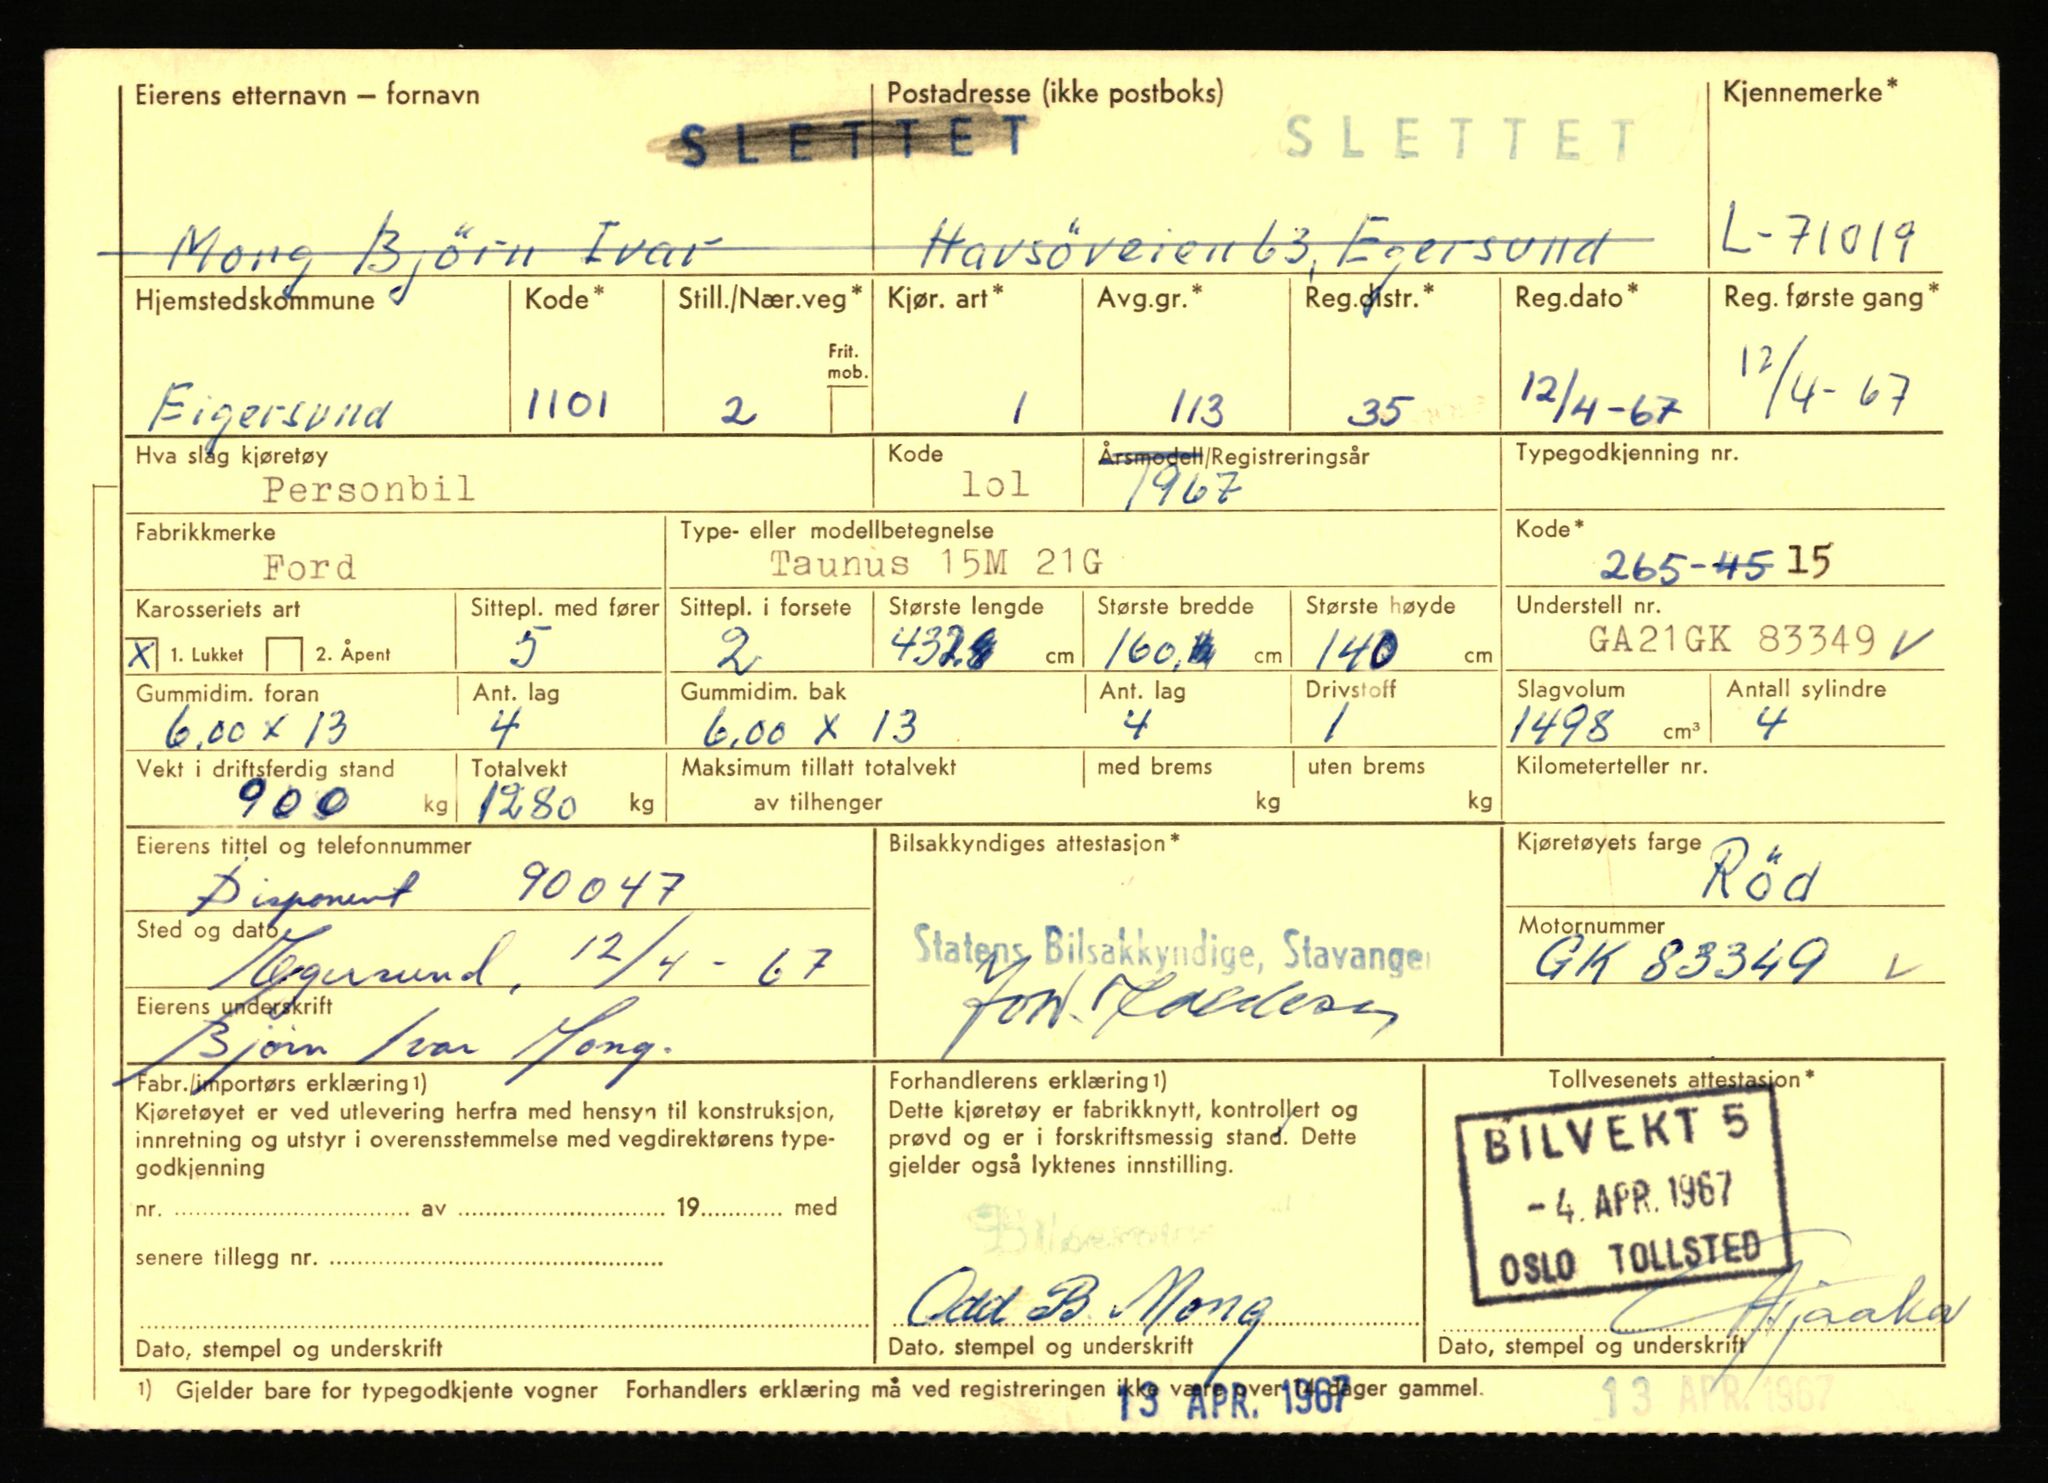 Eierens etternavn – fornavn Postadresse (ikke postboks) Kjennemerke*
SLETTET SLETTET
Mong Björn Ivar Havsöveien 63, Egersund L-71019
Hjemstedskommune Kode* Still./Nær.veg* Kjør. art* Avg.gr.* Reg.distr.* Reg.dato* Reg. første gang*
Frit. mob.
Eigersund 1101 2 1 113 35 12/4-67 12/4-67
Hva slag kjøretøy Kode Årsmodell/Registreringsår Typegodkjenning nr.
Personbil lol 1967
Fabrikkmerke Type- eller modellbetegnelse Kode*
Ford Taunus 15M 21G 265-45 15
Karosseriets art Sittepl. med fører Sittepl. i forsete Største lengde Største bredde Største høyde Understell nr.
X 1. Lukket 2. Åpent 5 2 432 cm 160 cm 140 cm GA21GK 83349 V
Gummidim. foran Ant. lag Gummidim. bak Ant. lag Drivstoff Slagvolum Antall sylindre
6,00 x 13 4 6,00 x 13 4 1 1498 cm³ 4
Vekt i driftsferdig stand Totalvekt Maksimum tillatt totalvekt med brems uten brems Kilometerteller nr.
900 kg 1280 kg av tilhenger kg kg
Eierens tittel og telefonnummer Bilsakkyndiges attestasjon* Kjøretøyets farge
Disponent 90047 Röd
Sted og dato Motornummer
Egersund, 12/4-67 Statens Bilsakkyndige, Stavanger GK 83349 V
Eierens underskrift
Bjørn Ivar Mong.
Fabr./importørs erklæring1) Forhandlerens erklæring1) Tollvesenets attestasjon*
Kjøretøyet er ved utlevering herfra med hensyn til konstruksjon, Dette kjøretøy er fabrikknytt, kontrollert og BILVEKT 5
innretning og utstyr i overensstemmelse med vegdirektørens type- prøvd og er i forskriftsmessig stand. Dette
godkjenning gjelder også lyktenes innstilling.
nr. av 19 med -4. APR. 1967
senere tillegg nr. OSLO TOLLSTED
Odd B. Mong
Dato, stempel og underskrift Dato, stempel og underskrift Dato, stempel og underskrift
1) Gjelder bare for typegodkjente vogner Forhandlers erklæring må ved registreringen ikke være over 14 dager gammel.
13 APR. 1967 13 APR. 1967